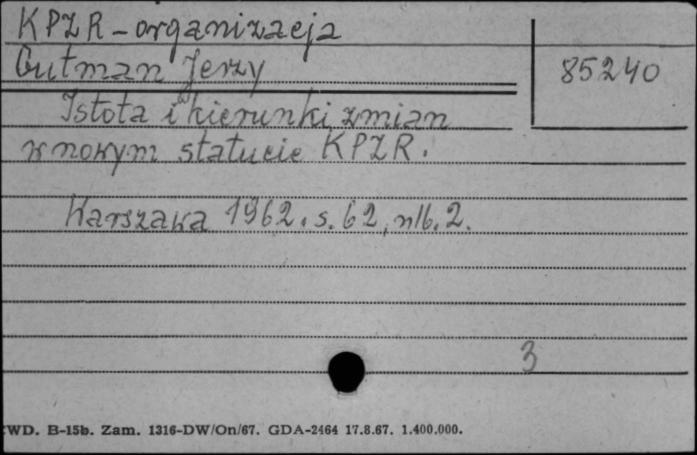 KPZR - organizacja
Gutman Jerzy
85240
Istota i kierunki zmian
w nowym statucie KPZR.
Warszawa 1962. s. 62, nlb. 2.
3
WD. B-15b. Zam. 1316-DW/On/67. GDA-2464 17.8.67. 1.400.000.